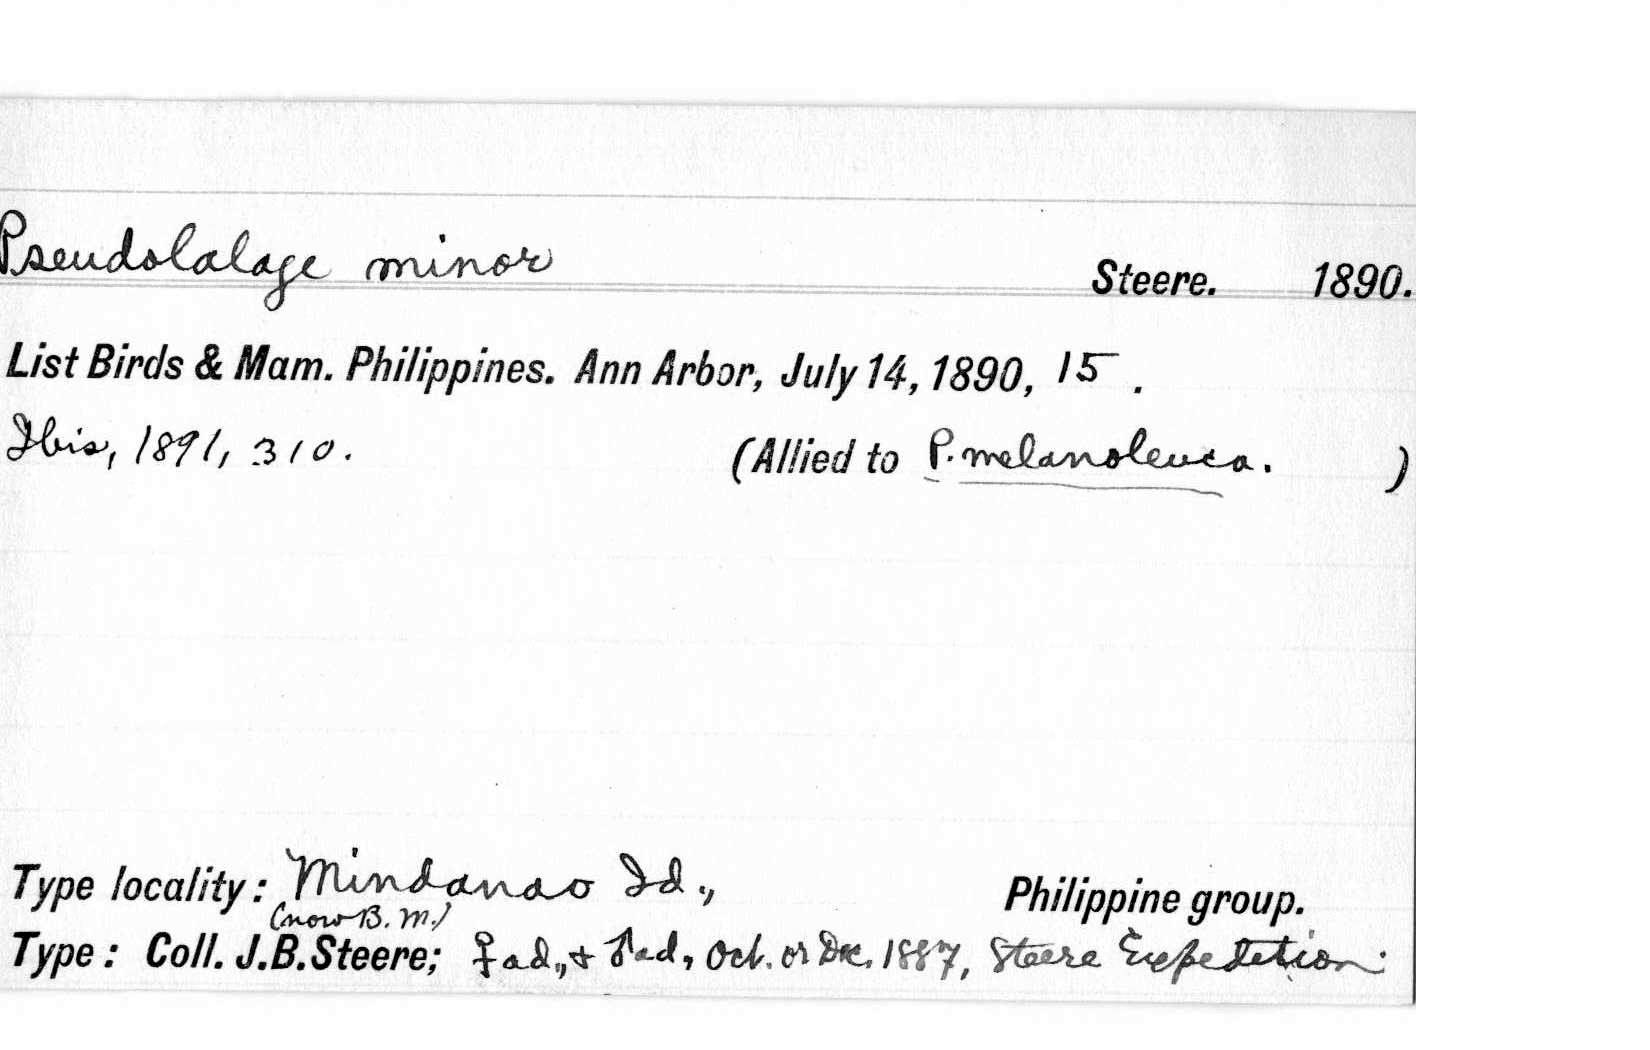 Pseudolalage minor Steere. 1890.
List Birds & Mam. Philippines. Ann Arbor, July 14, 1890, 15.
Ibis, 1891, 310. (Allied to P. melanoleuca. )
Type locality: Mindanao Id., Philippine group.
(now B. M.)
Type: Coll. J.B.Steere; ♀ ad., + ♂ ad, Oct. or Dec. 1887, Steere Expedition.